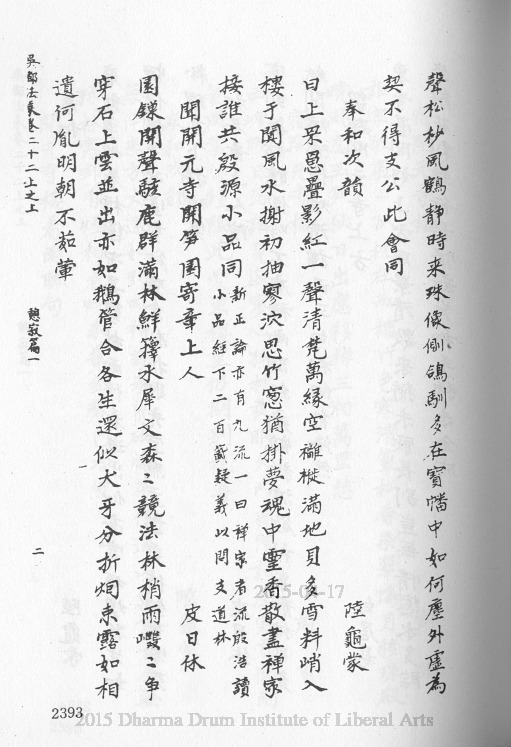 聲松杪風鶴靜時来珠像側鴿馴多在寶幡中如何塵外虛為
契不得支公此會同
奉和次韻
陸龜蒙
日上罘罳疊影紅一聲清梵萬緣空褵褷滿地貝多雪料峭入
樓于闐風水榭初抽寥泬思竹窻猶掛夢魂中靈香散盡禪家
接誰共殷源小品同
新正論亦有九流一曰禪家者流殷浩讀
小品經下二百籤疑義以問支道林
聞開元寺開笋園寄章上人
皮日休
園鏁開聲駭鹿群滿林鮮籜水犀文森〻競泫林梢雨䂎〻争
穿石上雲並出亦如鵝管合各生還似犬牙分折烟束露如相
遺何胤明朝不茹葷
吳都法乘卷二十二上之上
憩寂篇一
二
2393
2015-04-17
2015 Dharma Drum Institute of Liberal Arts